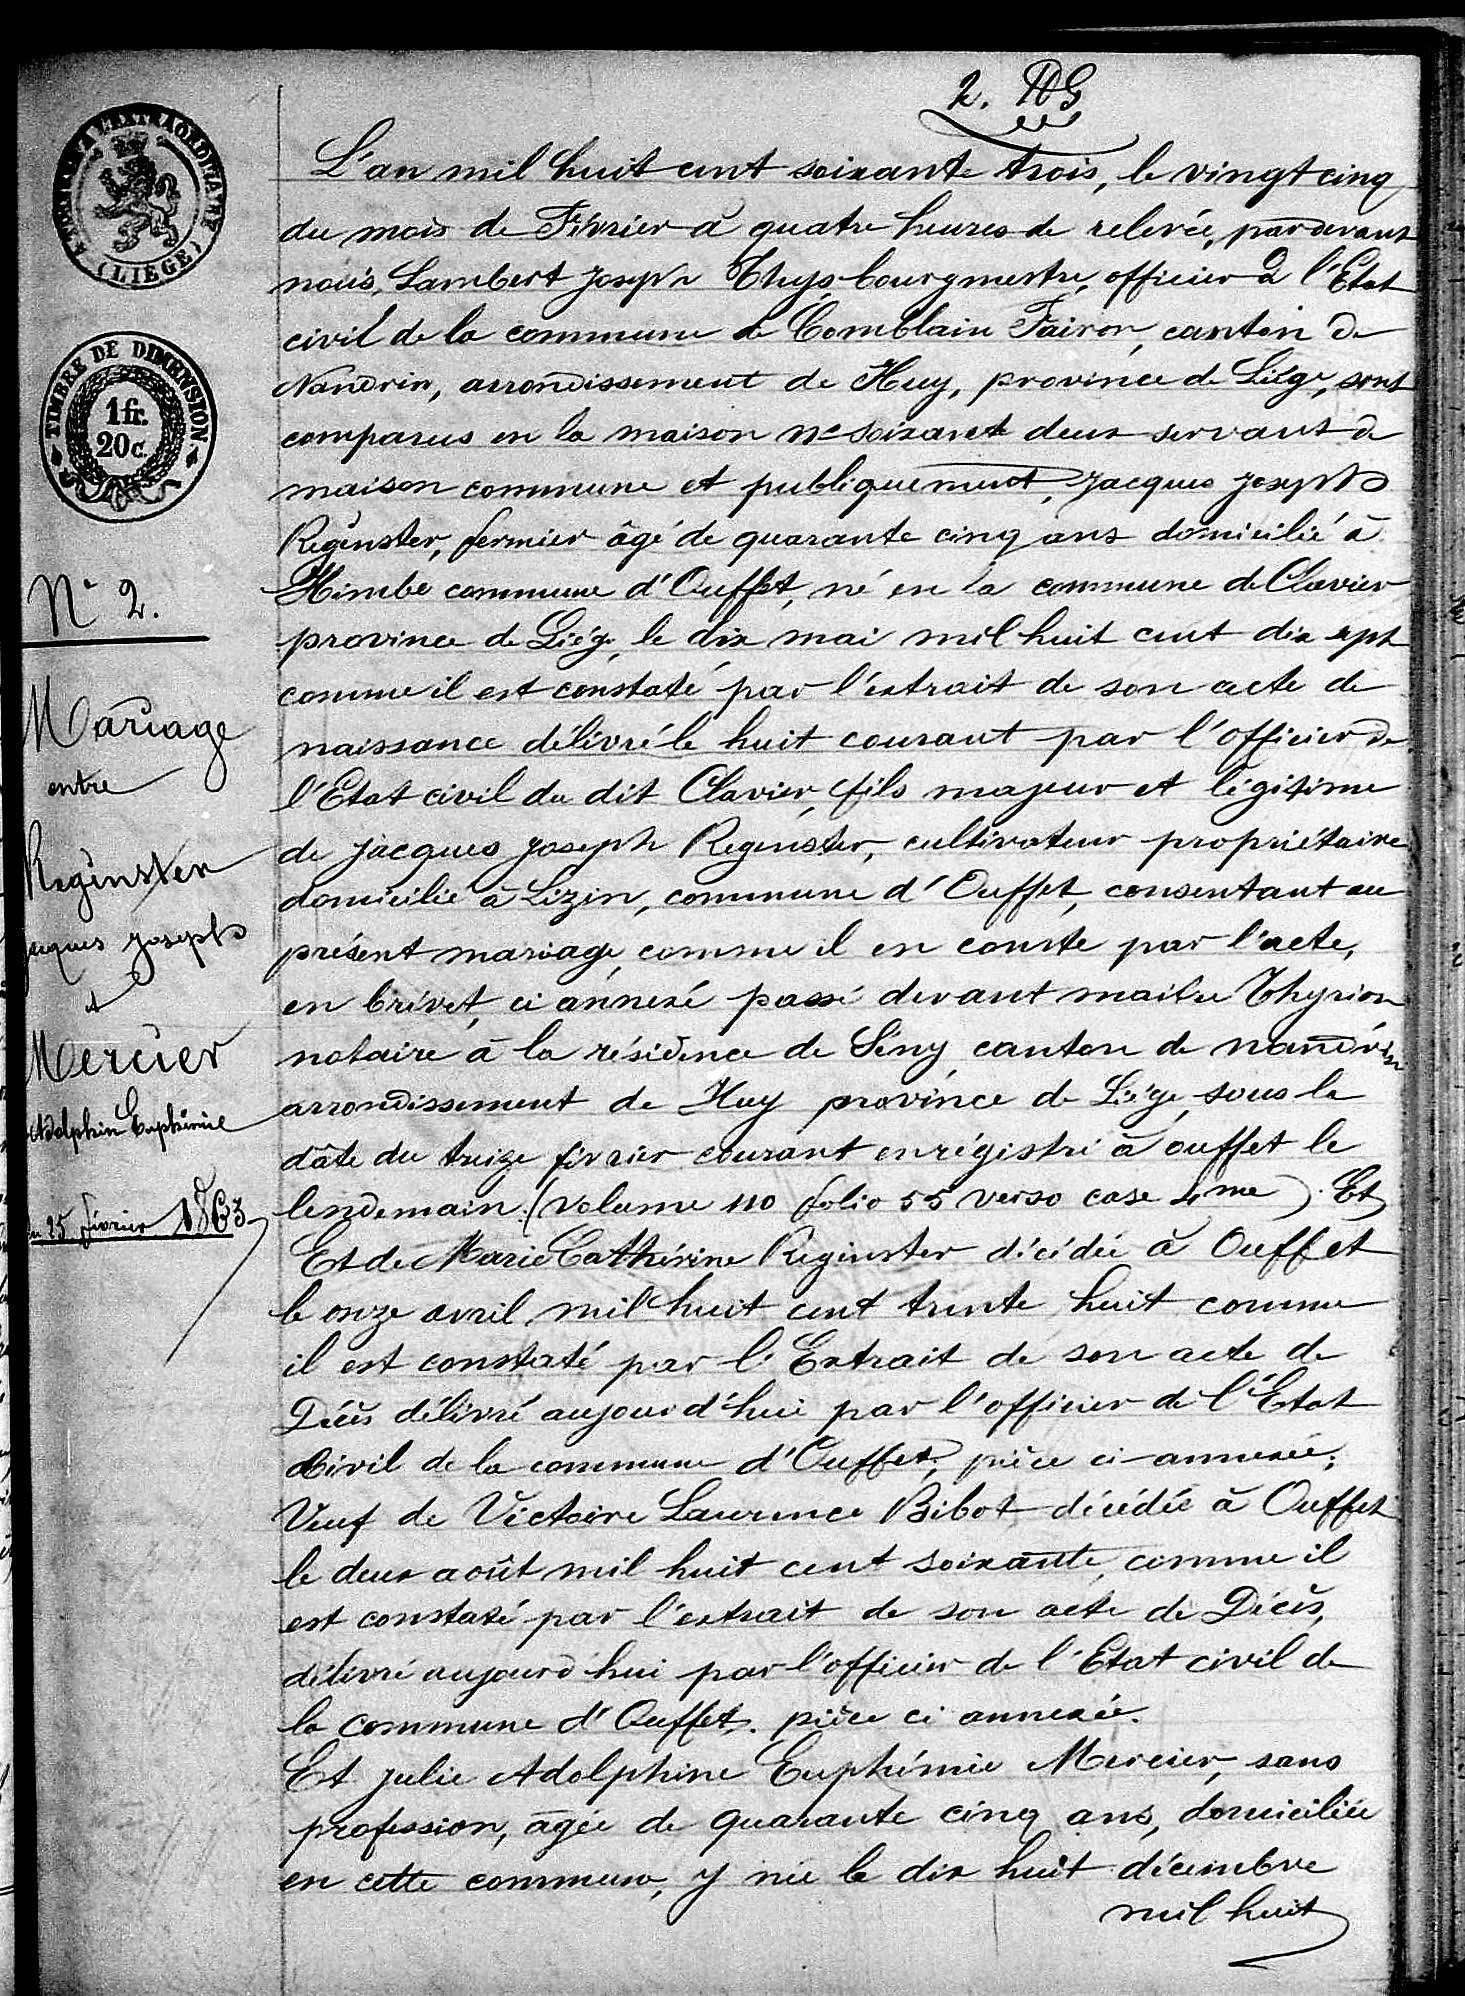 2. DG
L'an mil huit cent soixante trois, le vingt cinq
du mois de Février à quatre heures de relevée, pardevant
nous, Lambert Joseph Thys bourgmestre, officier de l'Etat
civil de la commune de Comblain Fairon, canton de
Nandrin, arrondissement de Huy, province de Liége, sont
comparus en la maison n° soixante deux servant de
maison commune et publiquement, Jacques Joseph
Reginster, fermier âgé de quarante cinq ans domicilié à
Himbe commune d'Ouffet, né en la commune de Clavier
province de Liége, le dix mai mil huit cent dix sept
comme il est constaté par l'extrait de son acte de
naissance délivré le huit courant par l'officier de
l'Etat civil du dit Clavier, fils majeur et légitime
de Jacques Joseph Reginster, cultivateur propriétaire
domicilié à Lizin, commune d'Ouffet, consentant au
présent mariage, comme il en conste par l'acte,
en brévet, ci annexé passé devant maitre Thyrion
notaire à la résidence de Seny, canton de nandrin
arrondissement de Huy province de Liége, sous la
dâte du treize février courant enrégistré à ouffet le
lendemain. (volume 110 folio 55 verso case 4me). Et
Et de Marie Cathérine Reginster décédée à Ouffet
le onze avril mil huit cent trente huit comme
il est constaté par l'Extrait de son acte de
Décès délivré aujourd'hui par l'officier de l'Etat
Civil de la commune d'Ouffet, pièce ci-annexée;
Veuf de Victoire Laurence Bibot décédée à Ouffet
le deux août mil huit cent soixante, comme il
est constaté par l'extrait de son acte de Décès,
délivré aujourd'hui par l'officier de l'Etat civil de
la commune d'Ouffet. pièce ci annexée.
Et Julie Adolphine Euphémie Mercier, sans
profession, agée de quarante cinq ans, domiciliée
en cette commune, y née le dix huit décembre
mil huit
TIMBRE A L'EXTRAORDINAIRE
(LIEGE)
TIMBRE DE DIMENSION
1 fr.
20 c.
N° 2.
Mariage
entre
Reginster
Jacques Joseph
et
Mercier
Adolphin Euphémie
du 25 février 1863